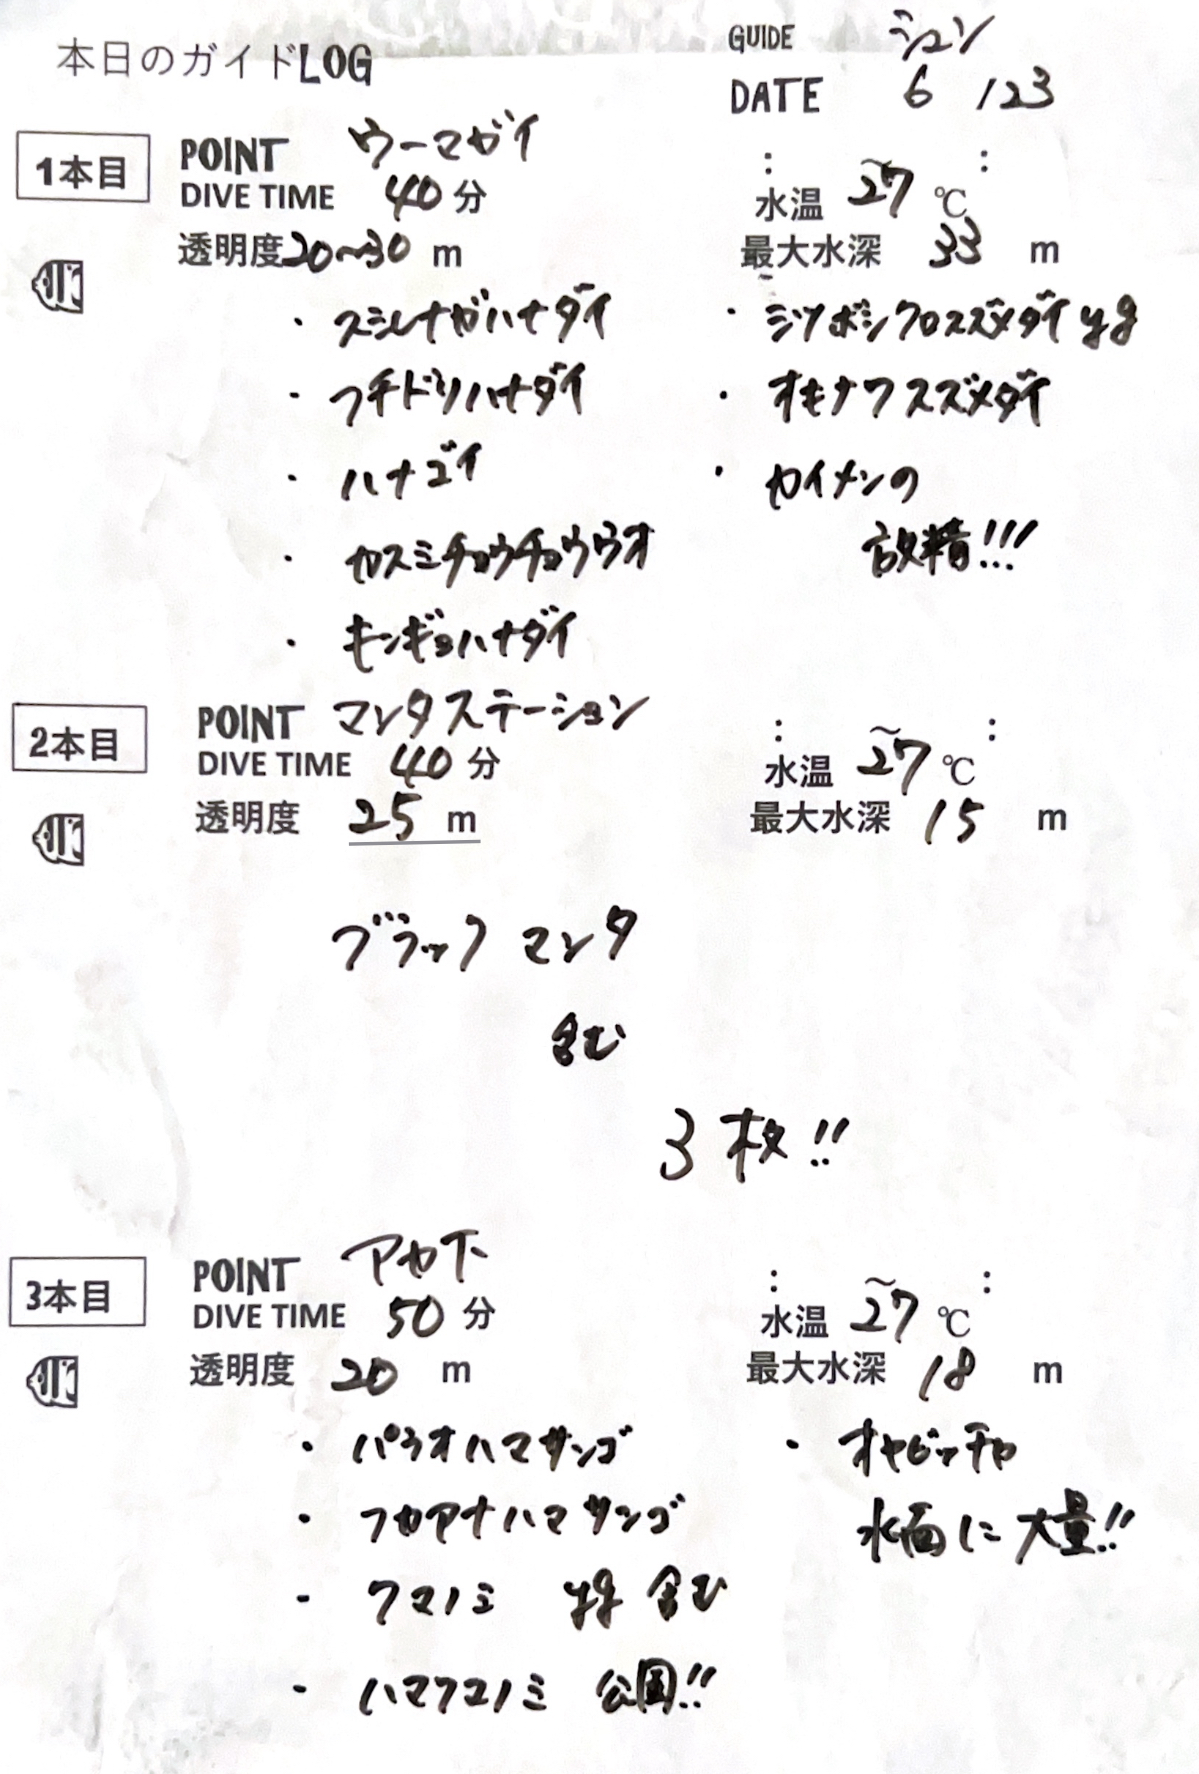 本日のガイドLOG
GUIDE シュン
DATE 6 / 23
1本目
POINT ウーマガイ
DIVE TIME 40 分
: 〜 :
水温 27 ℃
透明度 20〜30 m
最大水深 33 m
・スミレナガハナダイ
・フチドリハナダイ
・ハナゴイ
・カスミチョウチョウウオ
・キンギョハナダイ
・ミツボシクロスズメダイ yg
・オキナワスズメダイ
・カイメンの
放精!!!
2本目
POINT マンタステーション
DIVE TIME 40 分
: 〜 :
水温 27 ℃
透明度 25 m
最大水深 15 m
ブラックマンタ
含む
3枚!!
3本目
POINT アカ下
DIVE TIME 50 分
: 〜 :
水温 27 ℃
透明度 20 m
最大水深 18 m
・パラオハマサンゴ
・フカアナハマサンゴ
・クマノミ yg 含む
・ハマクマノミ 公園!!
・オヤビッチャ
水面に大量!!